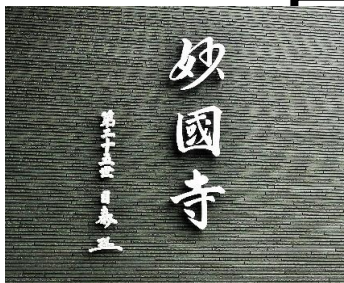 妙國寺
第三十五世 日